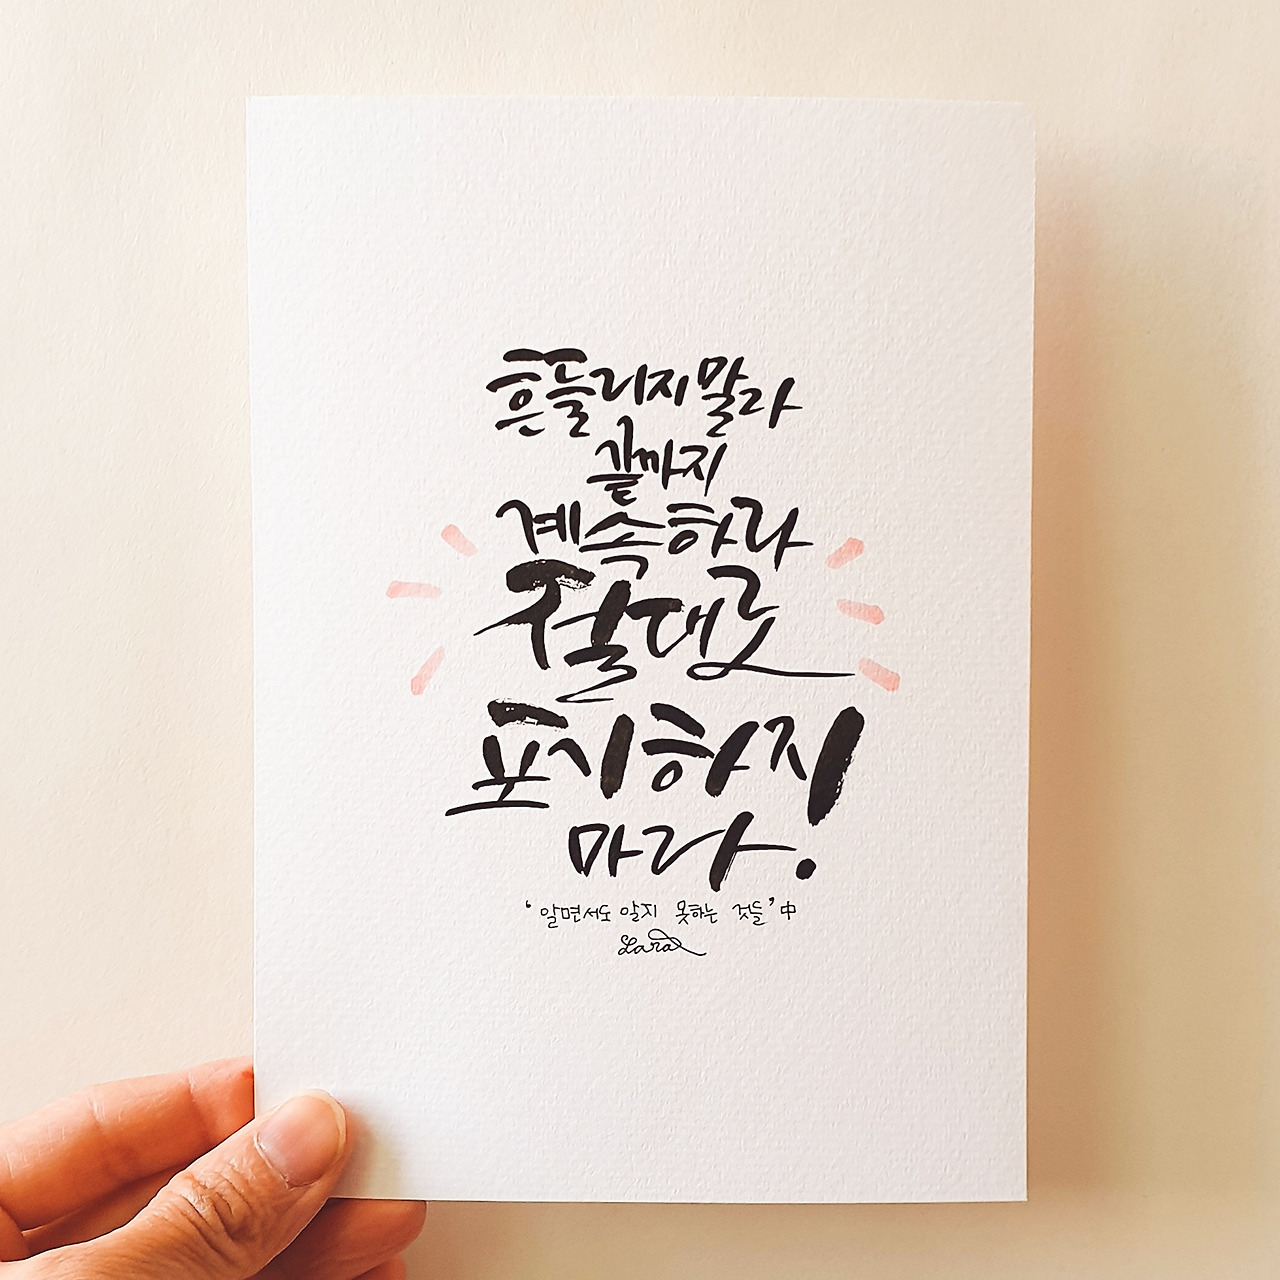 흔들리지말라
끝까지
계속하라
절대로
포기하지
마라.
'알면서도 알지 못하는 것들' 中
Lara